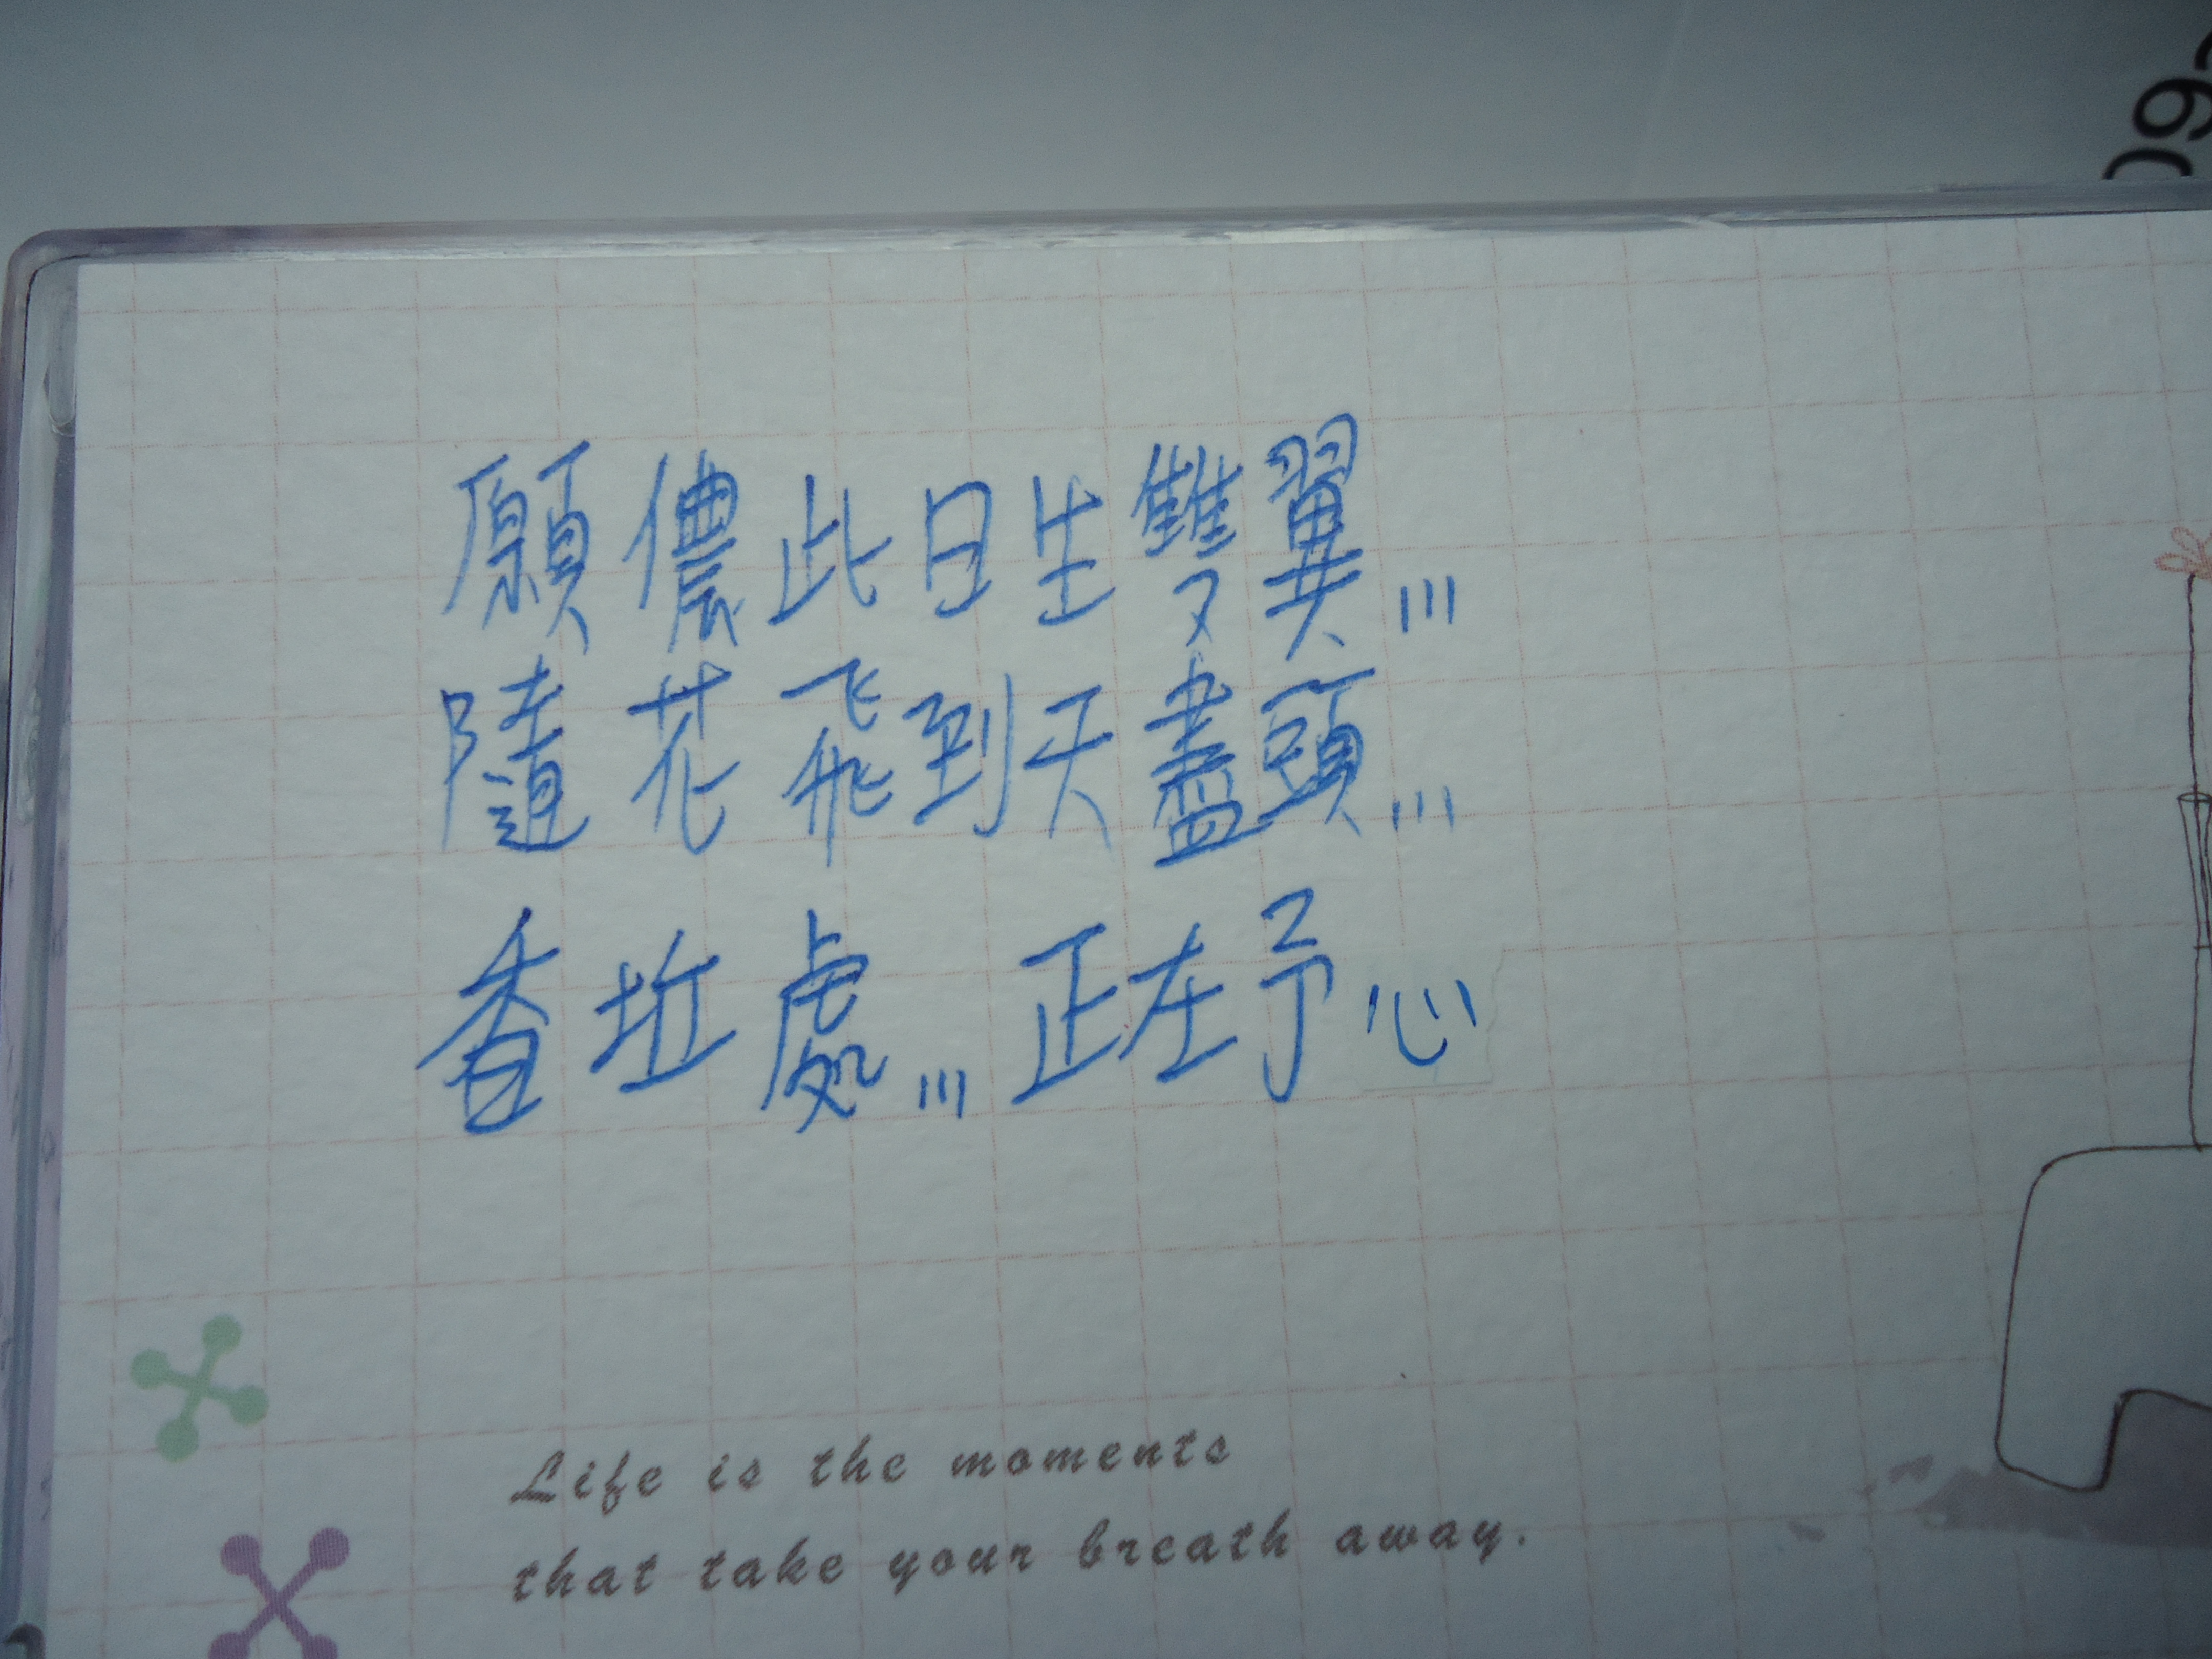 願儂此日生雙翼...
隨花飛到天盡頭...
香坵處...正在予心
Life is the moments
that take your breath away.
09